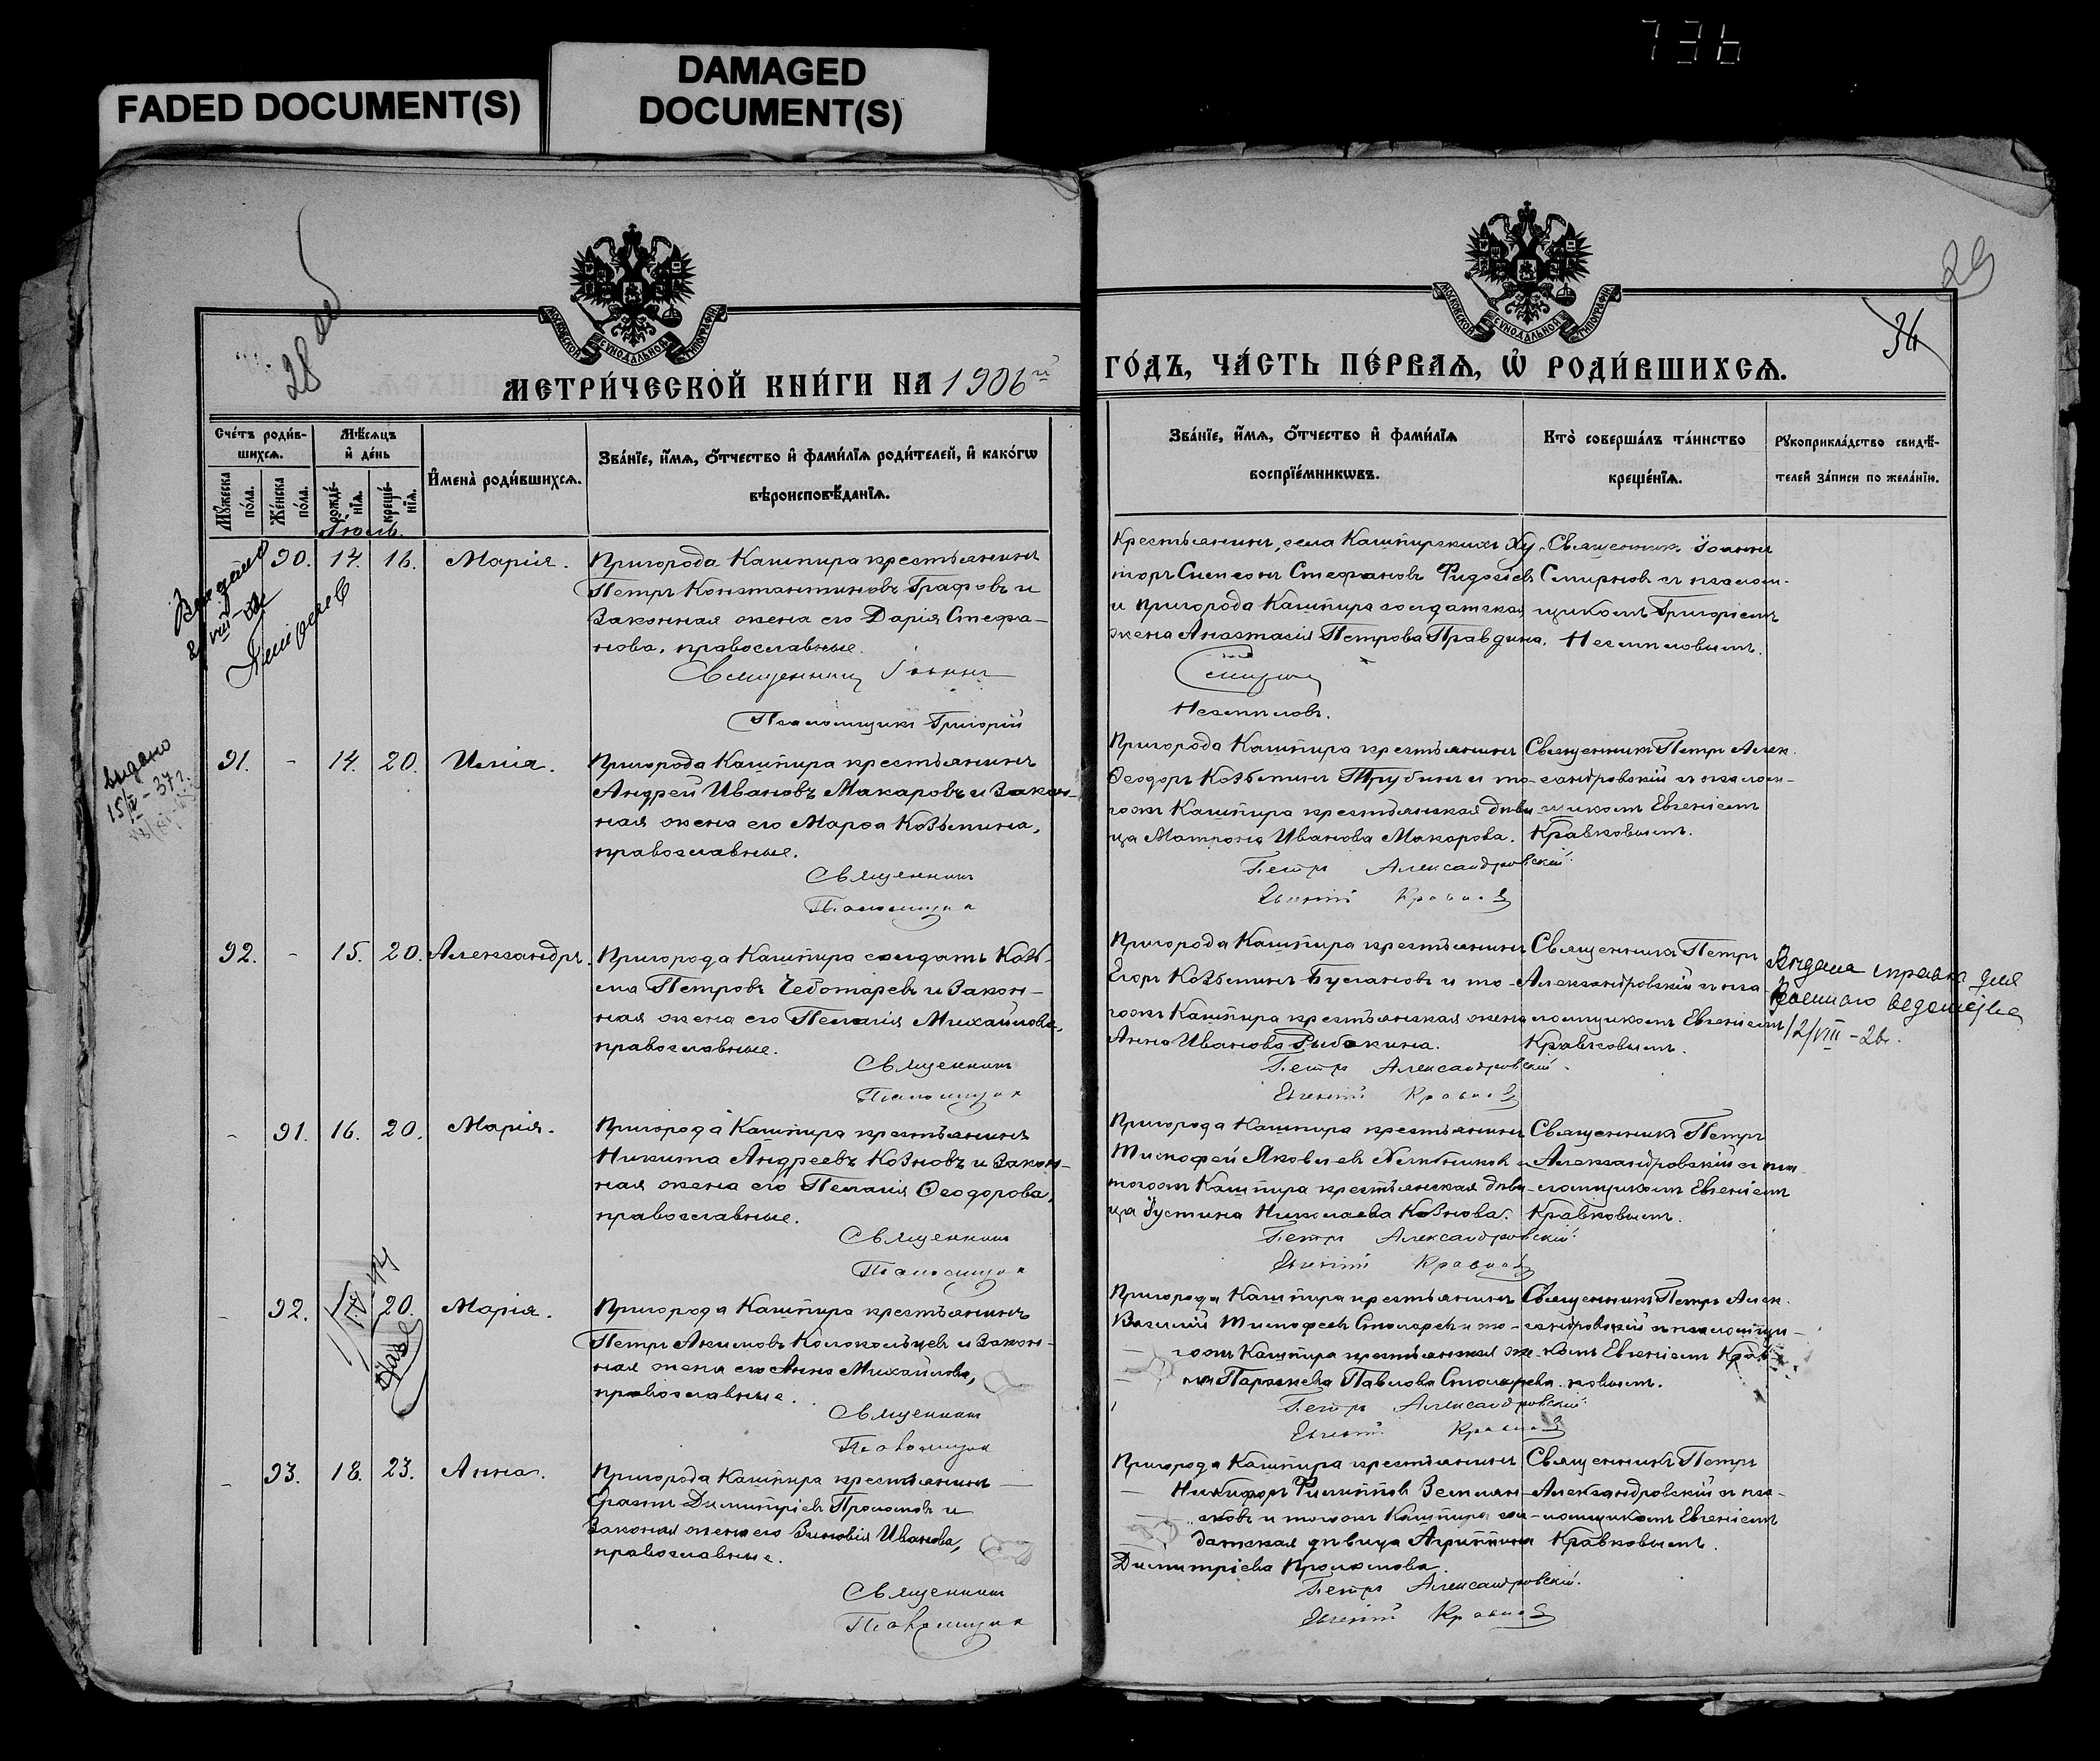 FADED DOCUMENT(S)
DAMAGED
DOCUMENT(S)
736
28 об
29
36
МОСКОВСКОЙ СѴНОДАЛЬНОЙ ТИПОГРАФІИ
МОСКОВСКОЙ СѴНОДАЛЬНОЙ ТИПОГРАФІИ
МЕТРИ́ЧЕСКОЙ КНИ́ГИ НА 1906й
ГО́ДЪ, ЧА́СТЬ ПЕ́РВАѦ, Ѽ РОДИ́ВШИХСѦ.
Сче́тъ роди́в-
шихсѧ.
Мꙋ́жеска
по́ла.
Же́нска
по́ла.
Мѣ́сѧцъ
и҆ де́нь
рожде́-
нїѧ.
креще́-
нїѧ.
И҆мена̀ роди́вшихсѧ.
Зва́нїе, и҆́мѧ, ѻ҆́тчество и҆ фами́лїѧ роди́телей, и҆ како́гѡ
вѣроисповѣ́данїѧ.
Зва́нїе, и҆́мѧ, ѻ҆́тчество и҆ фами́лїѧ
воспрїе́мникѡвъ.
Кто̀ соверша́лъ та́инство
креще́нїѧ.
Рꙋкоприкла́дство свидѣ́-
телей за́писи по жела́нїю.
Іюль.
90. 14. 16. Марія.
Пригорода Кашпира крестьянинъ
Петръ Константиновъ Графовъ и
законная жена его Дарія Стефа-
нова, православные.
Священникъ Іоаннъ
Псаломщикъ Григорій
Крестьянинъ, села Кашпирскихъ Ху-
торъ Симеонъ Стефановъ
и пригорода Кашпира солдатская
жена Анастасія Петрова Правдина.
Смирновъ
Несмѣловъ.
Священникъ Іоаннъ
Смирновъ съ псалом-
щикомъ Григоріемъ
Несмѣловымъ.
Выдано
91. - 14. 20. Илія.
Выдано
Пригорода Кашпира крестьянинъ
Андрей Ивановъ Макаровъ и закон-
ная жена его Марѳа Козьмина,
православные.
Священникъ
Псаломщикъ
Пригорода Кашпира крестьянинъ
Ѳеодоръ Козьминъ Трубинъ и то-
гоже Кашпира крестьянская дѣви-
ца Матрона Иванова Макарова.
Петръ Александровскій.
Евгеній Кравковъ
Священникъ Петръ Алек-
сандровскій съ псалом-
щикомъ Евгеніемъ
Кравковымъ.
92. - 15. 20. Александръ.
Пригорода Кашпира солдатъ Козь-
ма Петровъ Чеботаревъ и закон-
ная жена его Пелагія Михайлова,
православные.
Священникъ
Псаломщикъ
Пригорода Кашпира крестьянинъ
Егоръ Козьминъ Буслановъ и то-
гоже Кашпира крестьянская жена
Анна Иванова Рыбакина.
Петръ Александровскій.
Евгеній Кравковъ
Священникъ Петръ
Александровскій съ пса-
ломщикомъ Евгеніемъ
Кравковымъ.
Выдана справка для
Военного ведомства
12/VIII-26.
- 91. 16. 20. Марія.
Пригорода Кашпира крестьянинъ
Никита Андреевъ Козновъ и закон-
ная жена его Пелагія Ѳеодорова,
православные.
Священникъ
Псаломщикъ
Пригорода Кашпира крестьянинъ
Тимофей Яковлевъ Хлѣбниковъ и
тогоже Кашпира крестьянская дѣви-
ца Іустина Николаева Кознова.
Петръ Александровскій.
Евгеній Кравковъ
Священникъ Петръ
Александровскій съ пса-
ломщикомъ Евгеніемъ
Кравковымъ.
- 92. 20. Марія.
Пригорода Кашпира крестьянинъ
Петръ Акимовъ Колокольцевъ и закон-
ная жена его Анна Михайлова,
православные.
Священникъ
Псаломщикъ
Пригорода Кашпира крестьянинъ
Василій Тимофеевъ Столяревъ и то-
гоже Кашпира крестьянская же-
на Параскева Павлова Столярева.
Петръ Александровскій.
Евгеній Кравковъ
Священникъ Петръ Алек-
сандровскій съ псаломщи-
комъ Евгеніемъ Крав-
ковымъ.
- 93. 18. 23. Анна.
Пригорода Кашпира крестьянинъ
Ерастъ Димитріевъ Проломовъ и
законная жена его Зиновія Иванова,
православные.
Священникъ
Псаломщикъ
Пригорода Кашпира крестьянинъ
Никифоръ Филипповъ Землян-
сковъ и тогоже Кашпира сол-
датская дѣвица Агриппина
Димитріева Проломова.
Петръ Александровскій.
Евгеній Кравковъ
Священникъ Петръ
Александровскій съ пса-
ломщикомъ Евгеніемъ
Кравковымъ.